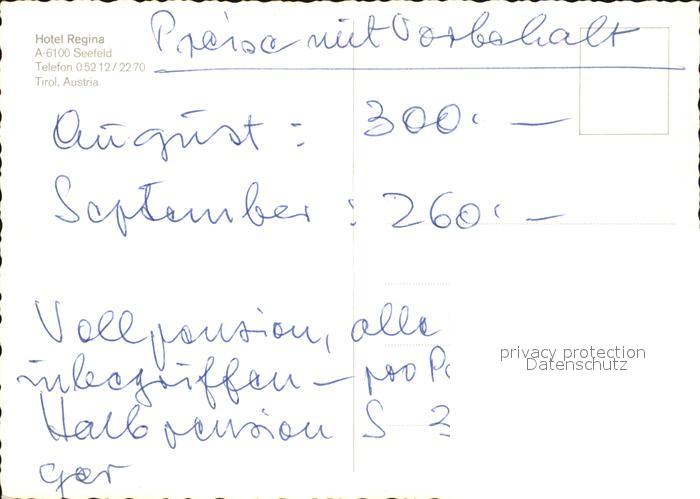 Hotel Regina
A-6100 Seefeld
Telefon 0 52 12 / 22 70
Tirol, Austria
Preise mit Vorbehalt
August : 300.—
September : 260.—
Vollpension, alle
inbegriffen — pro P
Halbpension S
ger
privacy protection
Datenschutz